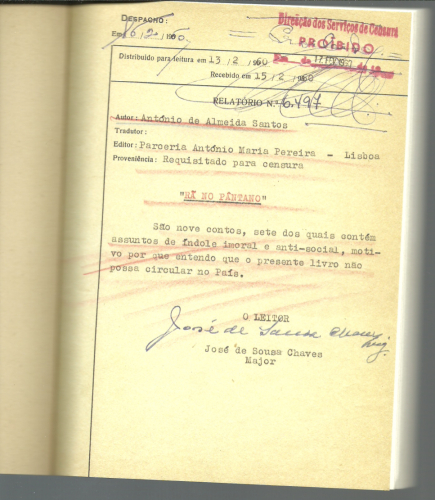 DESPACHO:
Em 16/2/1960.
Direcção dos Serviços de Censura
PROIBIDO
Distribuído para leitura em 13/2/1960
Recebido em 15/2/1960
RELATÓRIO N.º 6.497
Autor: António de Almeida Santos
Tradutor:
Editor: Parceria António Maria Pereira - Lisboa
Proveniência: Requisitado para censura
"RÃ NO PÂNTANO"
São nove contos, sete dos quais contém
assuntos de índole imoral e anti-social, moti-
vo por que entendo que o presente livro não
possa circular no País.
O LEITOR
José de Sousa Chaves
José de Sousa Chaves
Major